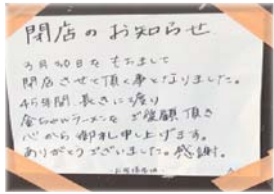 閉店のお知らせ
3月30日をもちまして
閉店させて頂く事となりました。
45年間長きに渡り
ラーメンをご愛顧頂き
心から御礼申し上げます。
ありがとうございました。感謝。